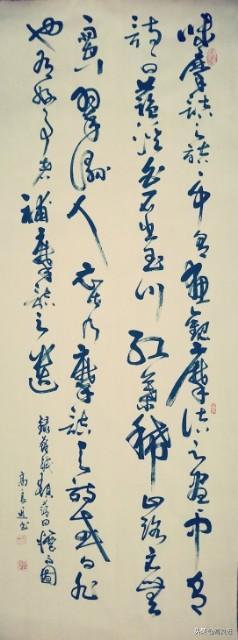 味摩詰之詩詩中有画觀摩詰之画画中有
詩詩曰藍溪白石出玉川紅葉稀山路元無
雨空翠濕人衣此乃摩詰之詩或曰非
也好事者補摩詰之遺
録蘇軾題藍田煙雨圖